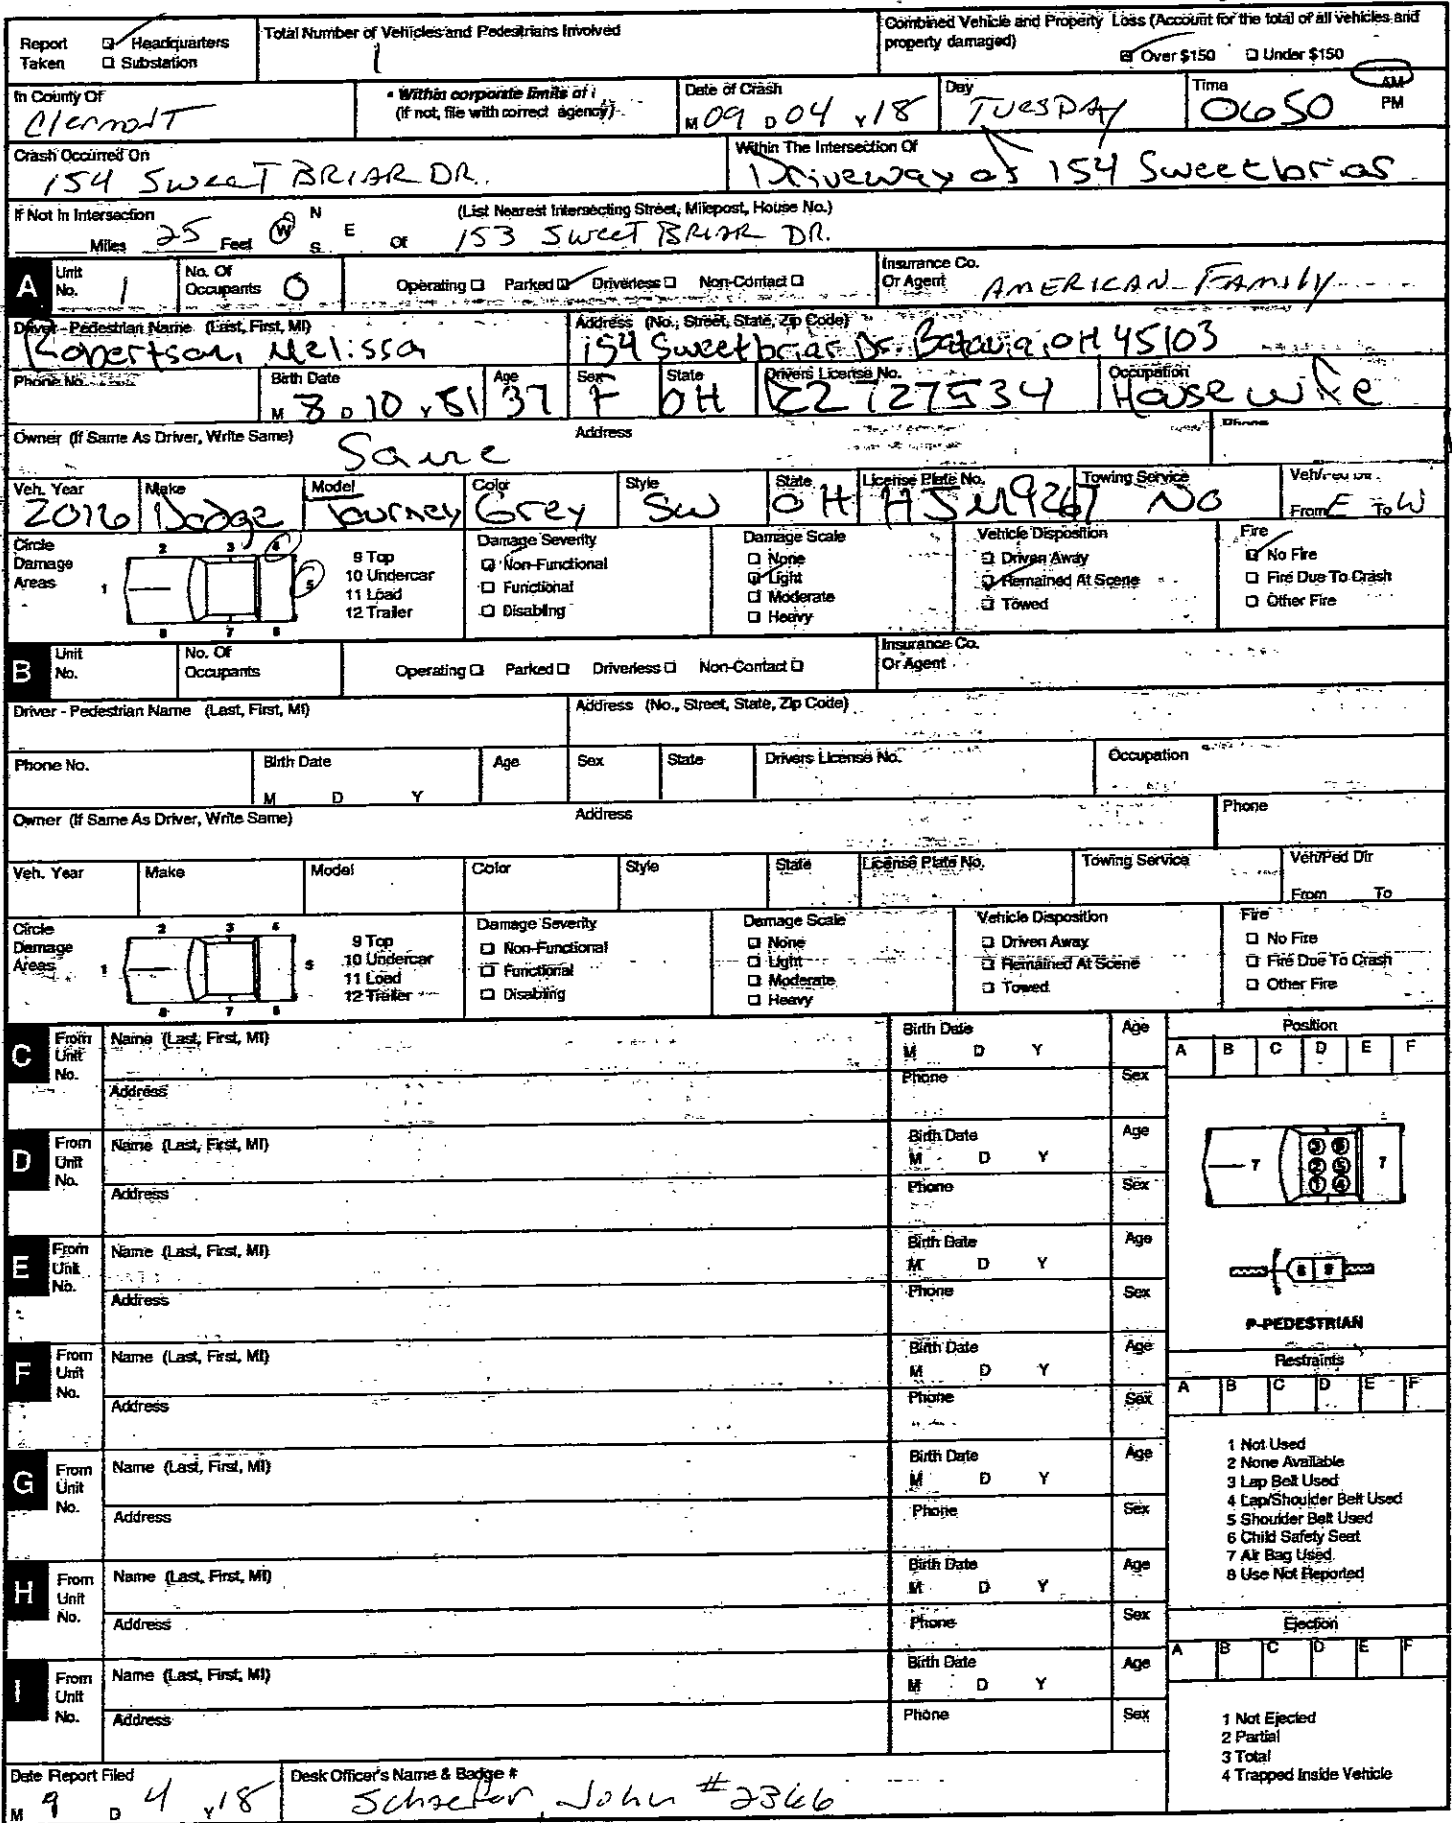 Report Taken ☑ Headquarters ☐ Substation
Total Number of Vehicles and Pedestrians Involved
1
Combined Vehicle and Property Loss (Account for the total of all vehicles and property damaged)
☑ Over $150 ☐ Under $150
In County Of
Clermont
• Within corporate limits of
(If not, file with correct agency)
Date of Crash
M 09 D 04 Y 18
Day
TUESDAY
Time
0650
AM
PM
Crash Occurred On
154 SWEET BRIAR DR.
Within The Intersection Of
Driveway of 154 Sweetbriar
If Not In Intersection
Miles 25 Feet N S E W Of
(List Nearest Intersecting Street, Milepost, House No.)
153 SWEET BRIAR DR.
A Unit No. 1
No. Of Occupants 0
Operating ☐ Parked ☑ Driverless ☐ Non-Contact ☐
Insurance Co. Or Agent AMERICAN FAMILY
Driver - Pedestrian Name (Last, First, MI)
Robertson, Melissa
Address (No., Street, State, Zip Code)
154 Sweetbriar Dr. Batavia, OH 45103
Phone No.
Birth Date
M 8 D 10 Y 81
Age
37
Sex
F
State
OH
Drivers License No.
2727534
Occupation
House wife
Owner (If Same As Driver, Write Same)
Same
Address
Phone
Veh. Year
2016
Make
Dodge
Model
Journey
Color
Grey
Style
SW
State
OH
License Plate No.
HJM9267
Towing Service
NO
From E To W
Circle Damage Areas
1 2 3 4 5 6 7 8
9 Top
10 Undercar
11 Load
12 Trailer
Damage Severity
☑ Non-Functional
☐ Functional
☐ Disabling
Damage Scale
☐ None
☑ Light
☐ Moderate
☐ Heavy
Vehicle Disposition
☐ Driven Away
☑ Remained At Scene
☐ Towed
Fire
☑ No Fire
☐ Fire Due To Crash
☐ Other Fire
B Unit No.
No. Of Occupants
Operating ☐ Parked ☐ Driverless ☐ Non-Contact ☐
Insurance Co. Or Agent
Driver - Pedestrian Name (Last, First, MI)
Address (No., Street, State, Zip Code)
Phone No.
Birth Date
M D Y
Age
Sex
State
Drivers License No.
Occupation
Owner (If Same As Driver, Write Same)
Address
Phone
Veh. Year
Make
Model
Color
Style
State
License Plate No.
Towing Service
Veh/Ped Dir
From To
Circle Damage Areas
1 2 3 4 5 6 7 8
9 Top
10 Undercar
11 Load
12 Trailer
Damage Severity
☐ Non-Functional
☐ Functional
☐ Disabling
Damage Scale
☐ None
☐ Light
☐ Moderate
☐ Heavy
Vehicle Disposition
☐ Driven Away
☐ Remained At Scene
☐ Towed
Fire
☐ No Fire
☐ Fire Due To Crash
☐ Other Fire
C From Unit No.
Name (Last, First, MI)
Birth Date
M D Y
Age
Address
Phone
Sex
D From Unit No.
Name (Last, First, MI)
Birth Date
M D Y
Age
Address
Phone
Sex
E From Unit No.
Name (Last, First, MI)
Birth Date
M D Y
Age
Address
Phone
Sex
F From Unit No.
Name (Last, First, MI)
Birth Date
M D Y
Age
Address
Phone
Sex
G From Unit No.
Name (Last, First, MI)
Birth Date
M D Y
Age
Address
Phone
Sex
H From Unit No.
Name (Last, First, MI)
Birth Date
M D Y
Age
Address
Phone
Sex
I From Unit No.
Name (Last, First, MI)
Birth Date
M D Y
Age
Address
Phone
Sex
Position
A B C D E F
7 3 6 2 5 1 4 7
8 9
P-PEDESTRIAN
Restraints
A B C D E F
1 Not Used
2 None Available
3 Lap Belt Used
4 Lap/Shoulder Belt Used
5 Shoulder Belt Used
6 Child Safety Seat
7 Air Bag Used
8 Use Not Reported
Ejection
A B C D E F
1 Not Ejected
2 Partial
3 Total
4 Trapped Inside Vehicle
Date Report Filed
M 9 D 4 Y 18
Desk Officer's Name & Badge #
Schaefer, John #2366